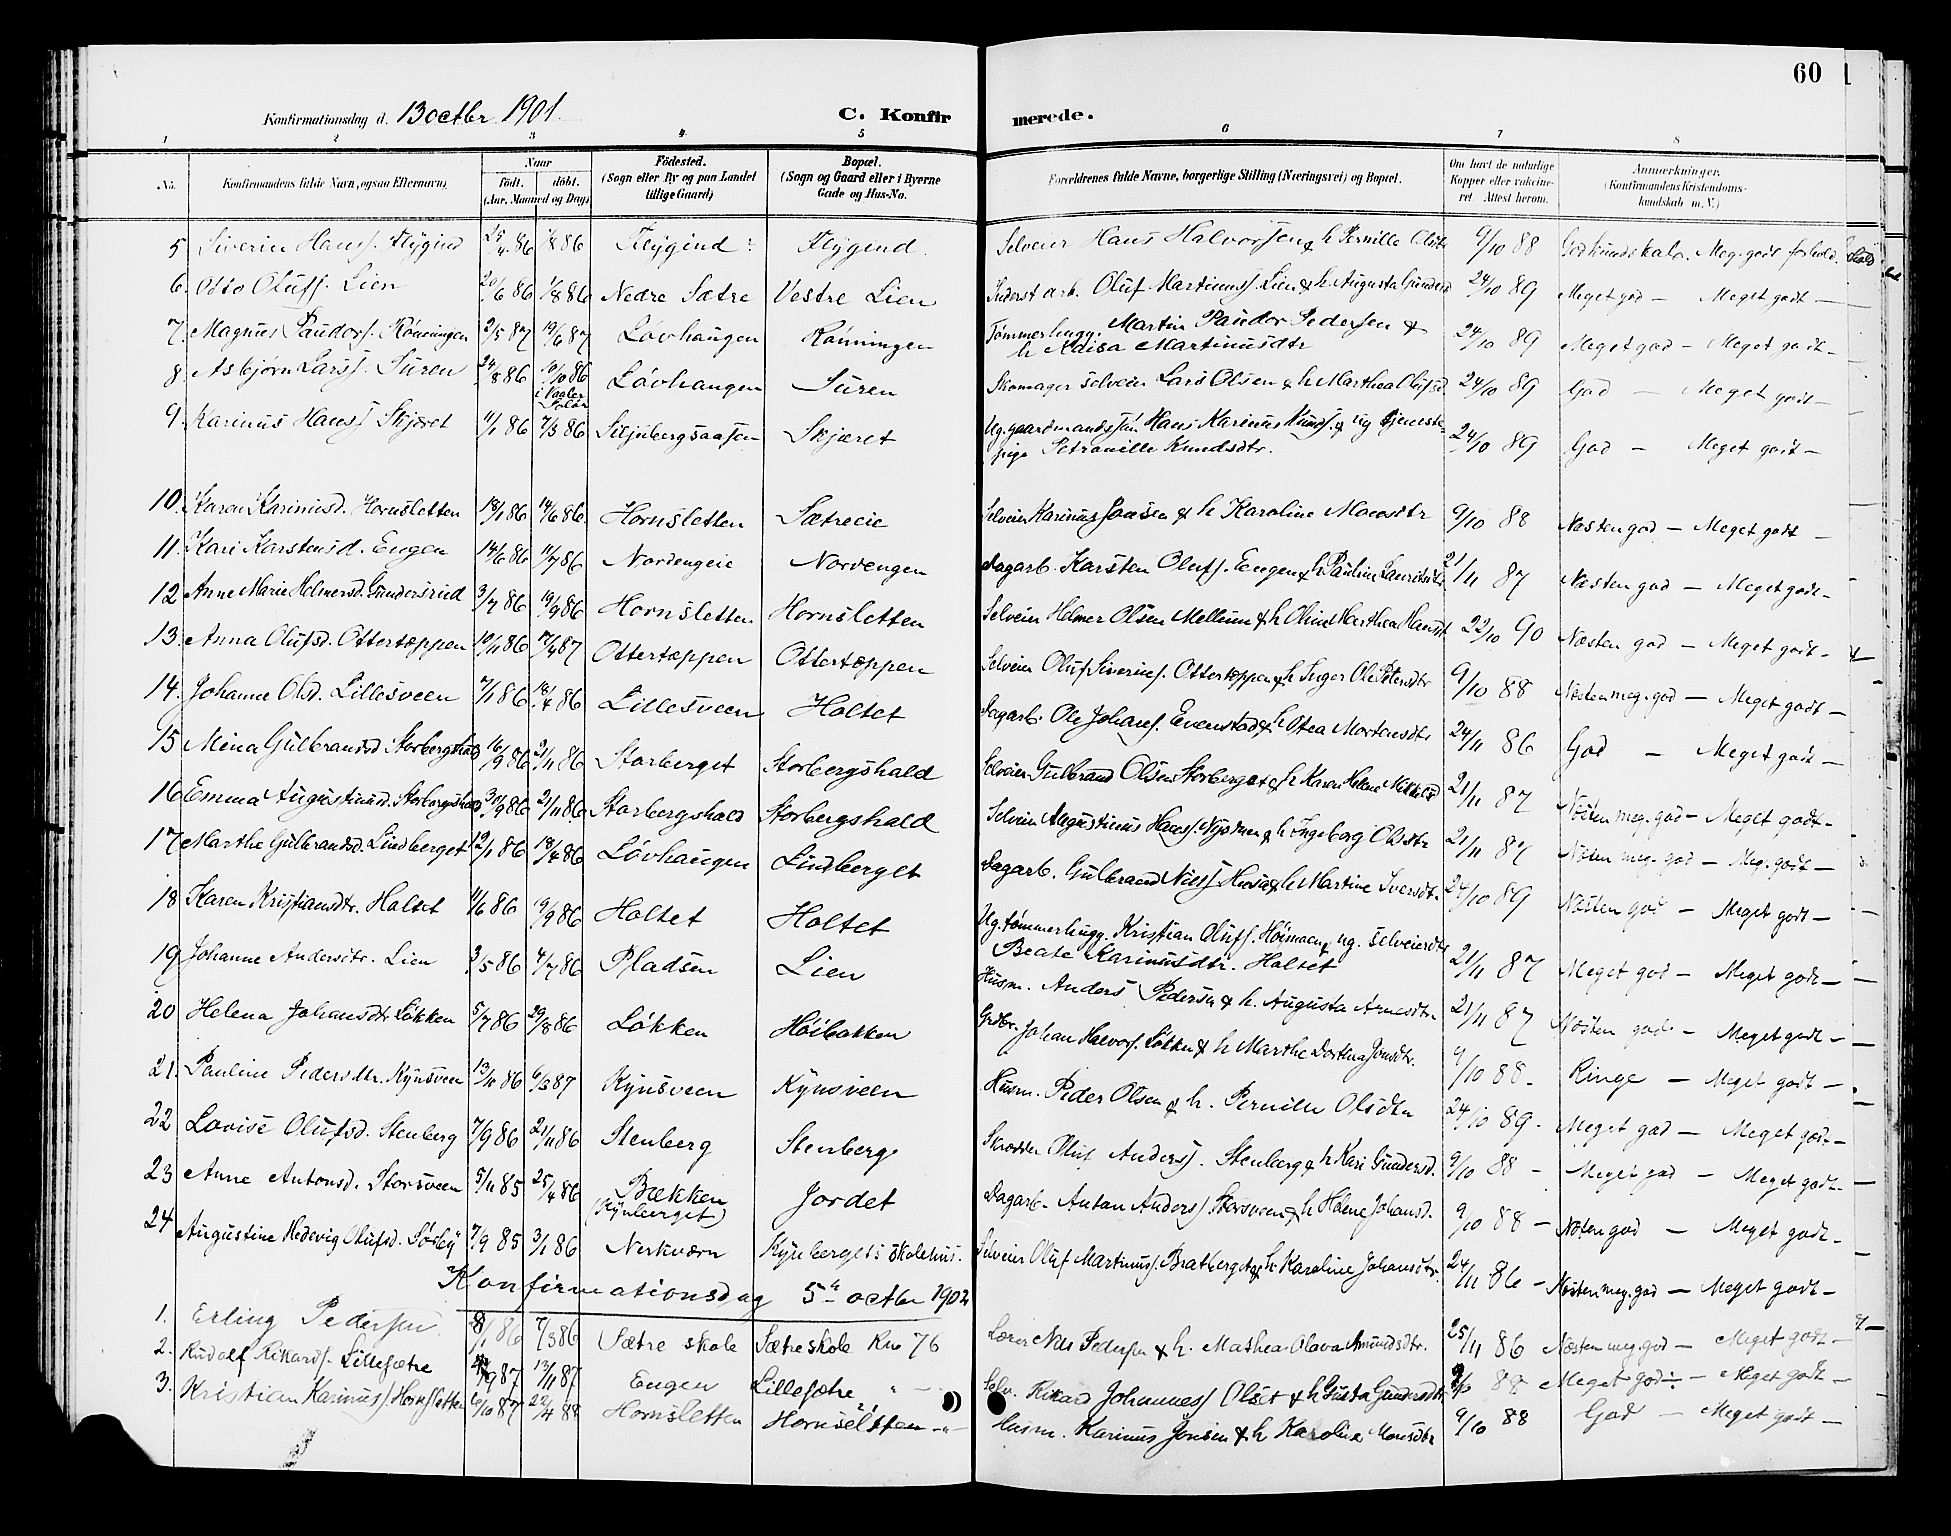 60
Konfirmationsdag d. 13 octbr 1901. C. Konfirmerede.
1 2 3 4 5 6 7 8
No. Konfirmandens fulde Navn, ogsaa Efternavn. Naar født. døbt. (Aar, Maaned og Dag) Fødested. (Sogn eller By og paa Landet tillige Gaard) Bopæl. (Sogn og Gaard eller i Byerne Gade og Hus-No. Forældrenes fulde Navne, borgerlige Stilling (Næringsvei) og Bopæl. Om havt de naturlige Kopper eller vakcineret. Attest herom. Anmerkninger. (Konfirmandens Kristendomskundskab m. V.)
5 Siverin Hanss. Flÿgind 25/4 86 1/8 86 Flÿgind Flÿgind. Selveier Hans Halvorssen & h Pernille Olsdtr 9/10 88 God kundskab. Meg. godt forhold.
6. Otto Olufs. Lien 20/6 86 1/8 86 Nedre Sætre Vestre Lien Oluf Martinuss. Lien & h. Augusta 24/10 89 Meget god — Meget godt —
7. Magnus Paudors. Rønningen 2/5 87 19/6 87 Løvhaugen Rønningen Tømmerhugg. Martin Paudor Pedersen & h Kaisa Martinusdtr 24/10 89 Meget god — Meget godt —
8. Asbjørn Larss. Suren 24/8 86 10/10 86 i Vaaler Solør Løvhaugen Suren Skomager selveier Lars Olsen & h Marthea Olufsd. 24/10 89 God — Meget godt —
9. Karinus Hanss Skjæret 11/1 86 7/3 86 Siljubergsaasen Skjæret Ug. gaardmandssøn Hans Karinus Knuds. & ug tjenestepige Petronille Knudsdtr. 24/10 89 God — Meget godt —
10. Karen Karinusd. Hornsletten 18/1 86 14/6 86 Hornsletten Sætreeie Selveier Karinus Jonsen & h Karoline 9/10 88 Næsten god — Meget godt —
11. Kari Karstensd. Engen 14/6 86 11/7 86 Nordengeie Nordengen Dagarb. Karsten Olufs. Engen & h Pauline Lauritsdtr 21/11 87 Næsten god — Meget godt —
12 Anne Marie Helmersd. Gundersrud 3/7 86 19/9 86 Hornsletten Hornsletten Selveier Helmer Olsen Mellum & h Oline Marthea Hansdt. 22/10 90 Næsten god — Meget godt —
13. Anna Olufsd. Ottertæppen 10/11 86 17/4 87 Ottertæppen Ottertæppen Selveier Oluf Siverins. Ottertæppen & h Inger Ole Petersdtr 9/10 88 Næsten meg. god — Meget godt —
14. Johanne Olsd. Lillesveen 7/1 86 18/4 86 Lillesveen Holtet Dagarb. Ole Johans. Evenstad & h Otea Mortensdtr 24/11 86 God — Meget godt —
15 Mina Gulbrandsd Storbergshald 16/9 86 21/11 86 Storberget Storbergshald Selveier Gulbrand Olsen Storberget & h Karen Helene 21/11 87 Næsten meg. god — Meget godt —
16 Emma Augustinusd. Storbergshald 30/9 86 21/11 86 Storbergshald Storbergshald Selveier Augustinus Hanss. Nystuen & h Ingeborg Olsdtr 21/11 87 Næsten meg. god — Meg. godt —
17 Marthe Gulbrandsd. Lindberget 12/1 86 18/4 86 Løvhaugen Lindberget Dagarb. Gulbrand Nilss & h Martine Iversdtr. 24/10 89 Næsten god — Meget godt —
18 Karen Kristiansdtr. Holtet 11/6 86 19/9 86 Holtet Holtet Ug. tømmerhugg. Kristian Olufs. Høimoen & ug. selveierdtr Beate Karinusdtr. Holtet 21/11 87 Meget god — Meget godt —
19 Johanne Andersdtr. Lien 3/5 86 4/7 86 Pladsen Lien Husm. Anders Pedersen & h. Augusta Arnesdtr 21/11 87 Næsten god — Meget godt —
20 Helena Johansdtr Løkken 5/7 86 29/8 86 Løkken Høibakken Grdbr. Johan Halvors. Løkken & h Marthe Dorthea Jonsdtr. 9/10 88 — Ringe — Meget godt —
21. Pauline Pedersdtr. Kÿnsveen 13/11 86 6/3 87 Kÿnsveen Kÿnsveen Husm. Peder Olsen & h. Pernille Olsdtr 24/10 89 — Meget god — Meget godt —
22 Lovise Olufsd. Stenberg 7/9 86 21/11 86 Stenberg Stenberg Skrædder Oluf Anderss. Stenberg & h Kari Gundersd. 9/10 88 — Meget god — Meget godt —
23 Anne Antonsd. Storsveen 5/11 85 25/4 86 Bækken (Kÿnberget) Jordet Dagarb. Anton Anderss. Storsveen & h Helene Johansd. 9/10 88 — Næsten god — Meget godt —
24 Augustine Hedevig Olufsd. Sørbÿ 7/9 85 3/1 86 Nerkværn Kÿnbergets skolehus. Selveier Oluf Martinuss. Bratberget & h Karoline Johansdtr. 24/11 86 — Næsten meg. god — Meget godt —
Konfirmationsdag 5te octbr 1902
1. Erling Pedersen 8/1 86 7/3 86 Sætre skole Sætre skole Kno 76 Lærer Nils Pedersen & h. Mathea Olava Amundsdtr. 25/11 86 Næsten meg. god — Meget godt —
2. Rudolf Rikards. Lillesætre 87 13/11 87 Engen Lillesætre " — Selv. Rikard Johanness Olset & h Gusta Gundersdtr Meget god — Meget godt —
3. Kristian Karinuss. Hornsletten 6/10 87 22/4 88 Hornsletten Hornsletten —"— Husm. Karinus Jonsen & h Karoline Monsdtr 9/10 88 God — Meget godt —